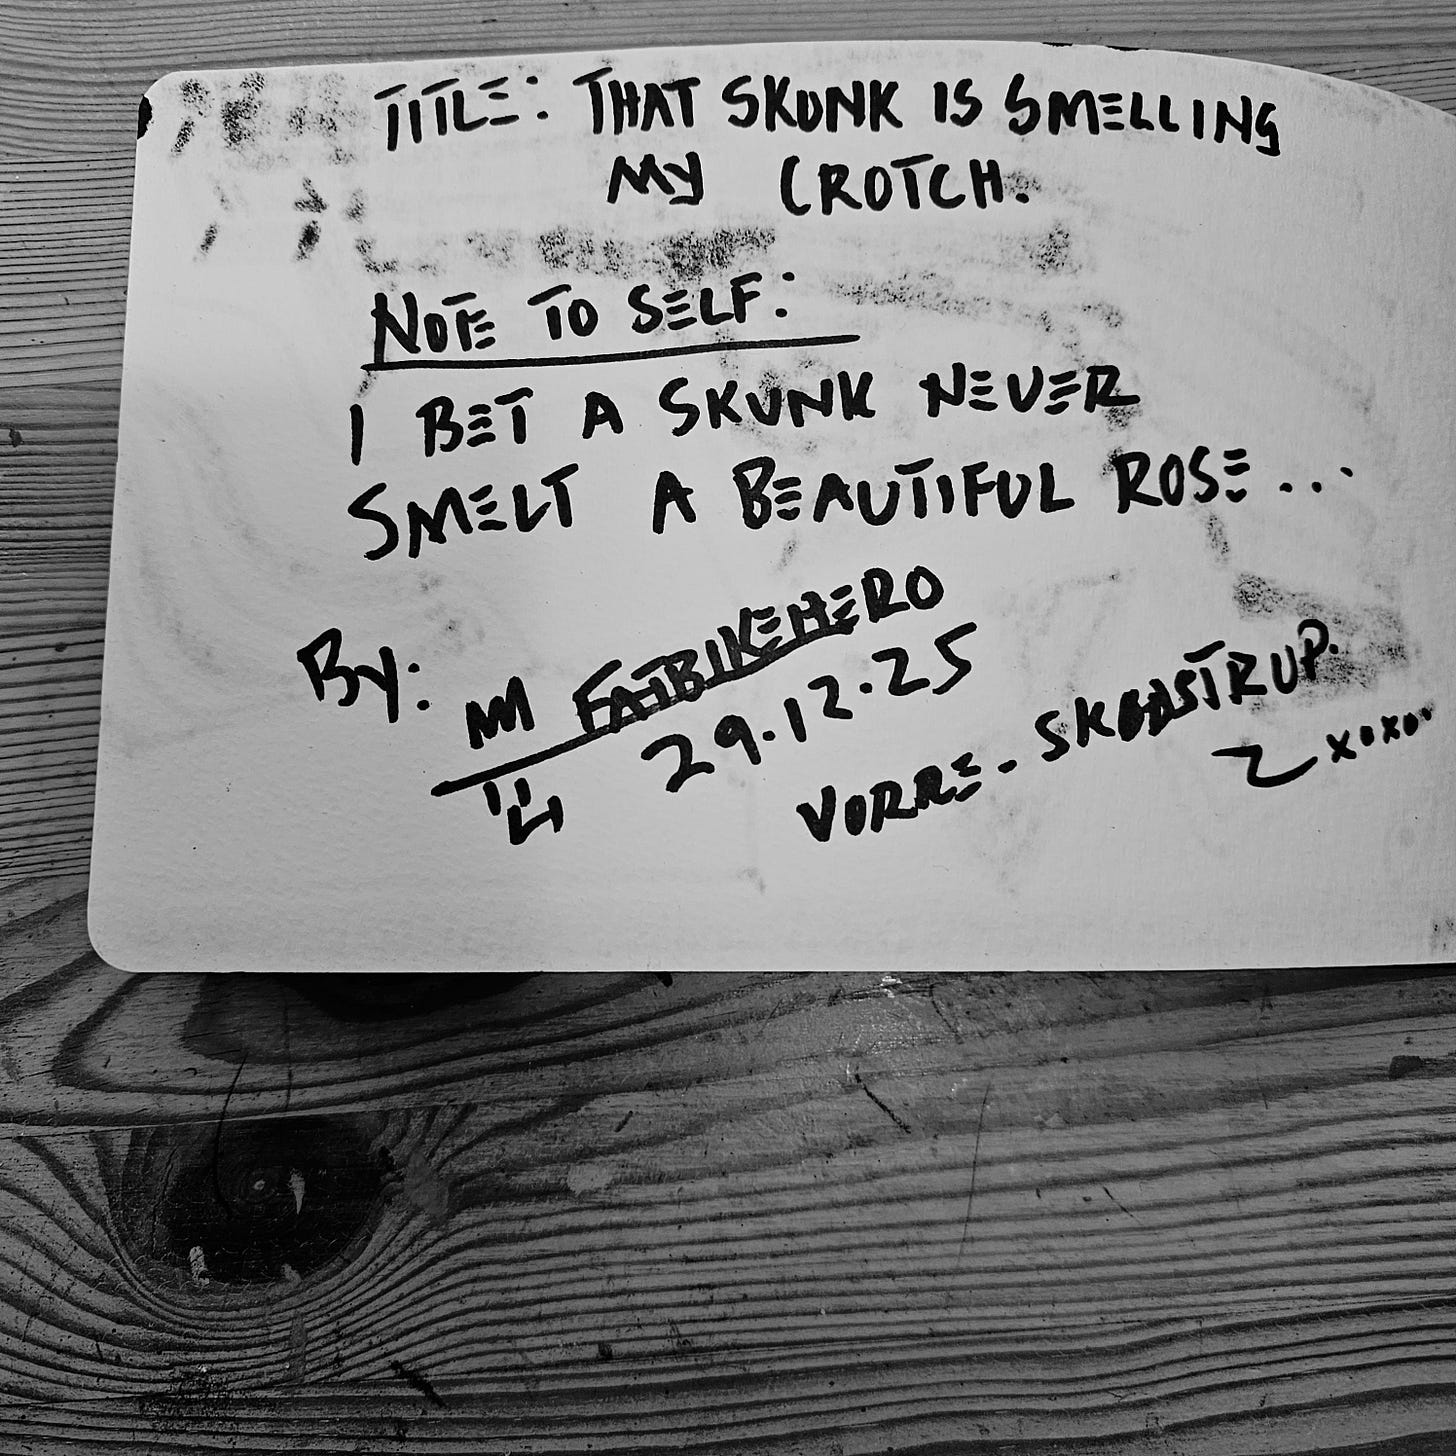 TITLE: THAT SKUNK IS SMELLING
MY CROTCH.
NOTE TO SELF:
I BET A SKUNK NEVER
SMELT A BEAUTIFUL ROSE...
By: FATBIKEHERO
29.12.25
VORRE-SKØDSTRUP.
xoxo.